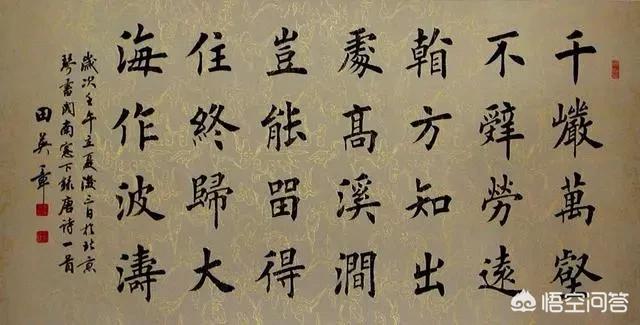 千巖萬壑
不辭勞遠
看方知出
處髙溪澗
豈能留得
住終歸大
海作波濤
歲次壬午立夏後三日於北京
琴書閣南窓下錄唐詩一首
田英章
悟空问答